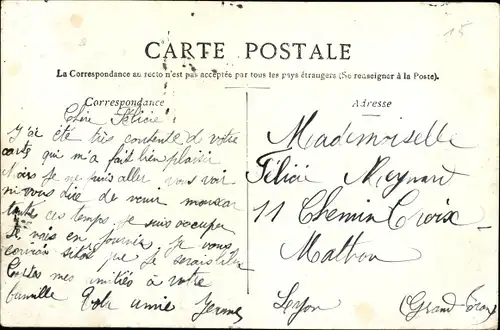 15
CARTE POSTALE
La Correspondance au recto n'est pas acceptée par tous les pays étrangers (Se renseigner à la Poste).
Correspondance
Adresse
Chère Félicie!
J'ai été très contente de votre
carte qui m'a fait bien plaisir
je ne puis aller vous voir
ni vous dire de venir
ces temps. Je suis occuper
Je vais en journée. Je vous
sitot que je serais libre
mes amitiés à votre
famille Votre amie
Mademoiselle
Félicie Meynard
11 Chemin Croix
Lyon (Grand